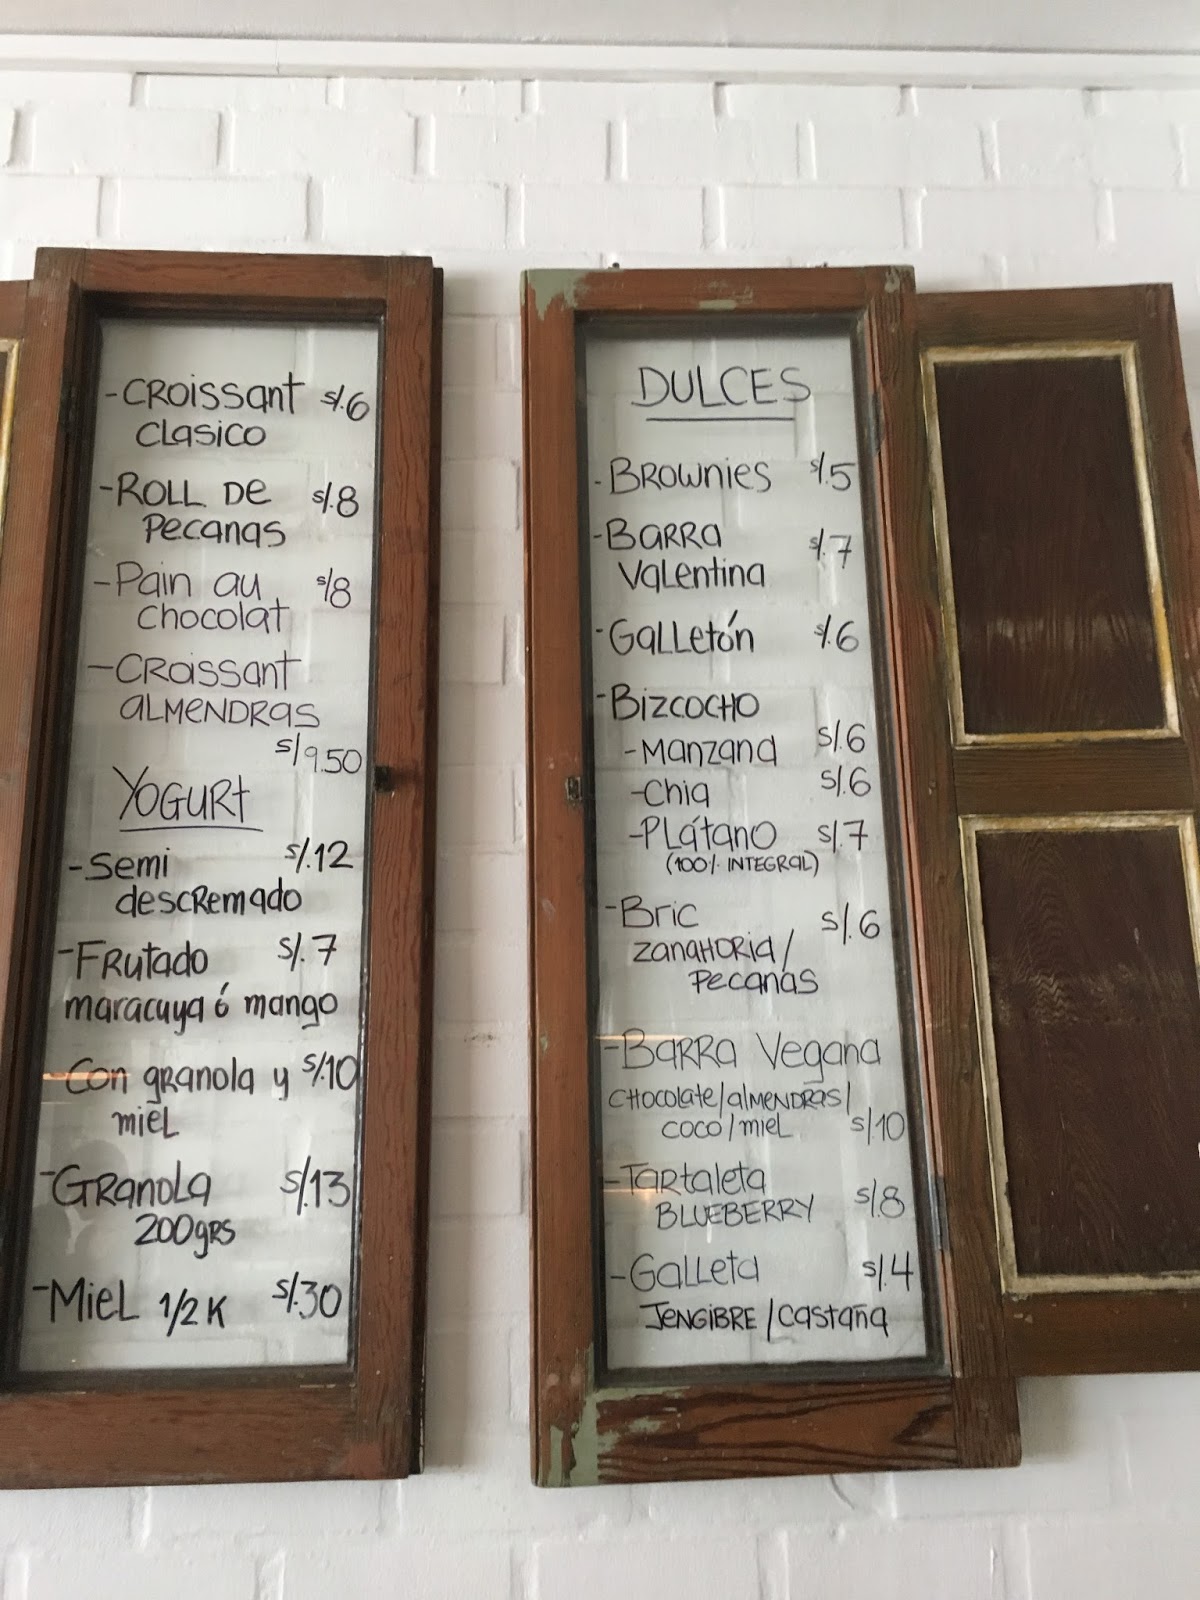 -Croissant S/.6
Clasico
-Roll de S/.8
Pecanas
-Pain au S/8
chocolat
-Croissant
almendras
S/9.50
Yogurt
-Semi S/.12
descremado
-Frutado S/.7
maracuya ó mango
Con granola y S/.10
miel
-Granola S/.13
200grs
-Miel 1/2 K S/.30
DULCES
-Brownies S/.5
-Barra S/.7
Valentina
-Galletón S/.6
-Bizcocho
-Manzana S/.6
-Chia S/.6
-Plátano S/.7
(100% INTEGRAL)
-Bric S/.6
zanahoria/
Pecanas
-Barra Vegana
chocolate/almendras/
coco/miel S/.10
-Tartaleta S/.8
BLUEBERRY
-Galleta S/.4
Jengibre/castaña